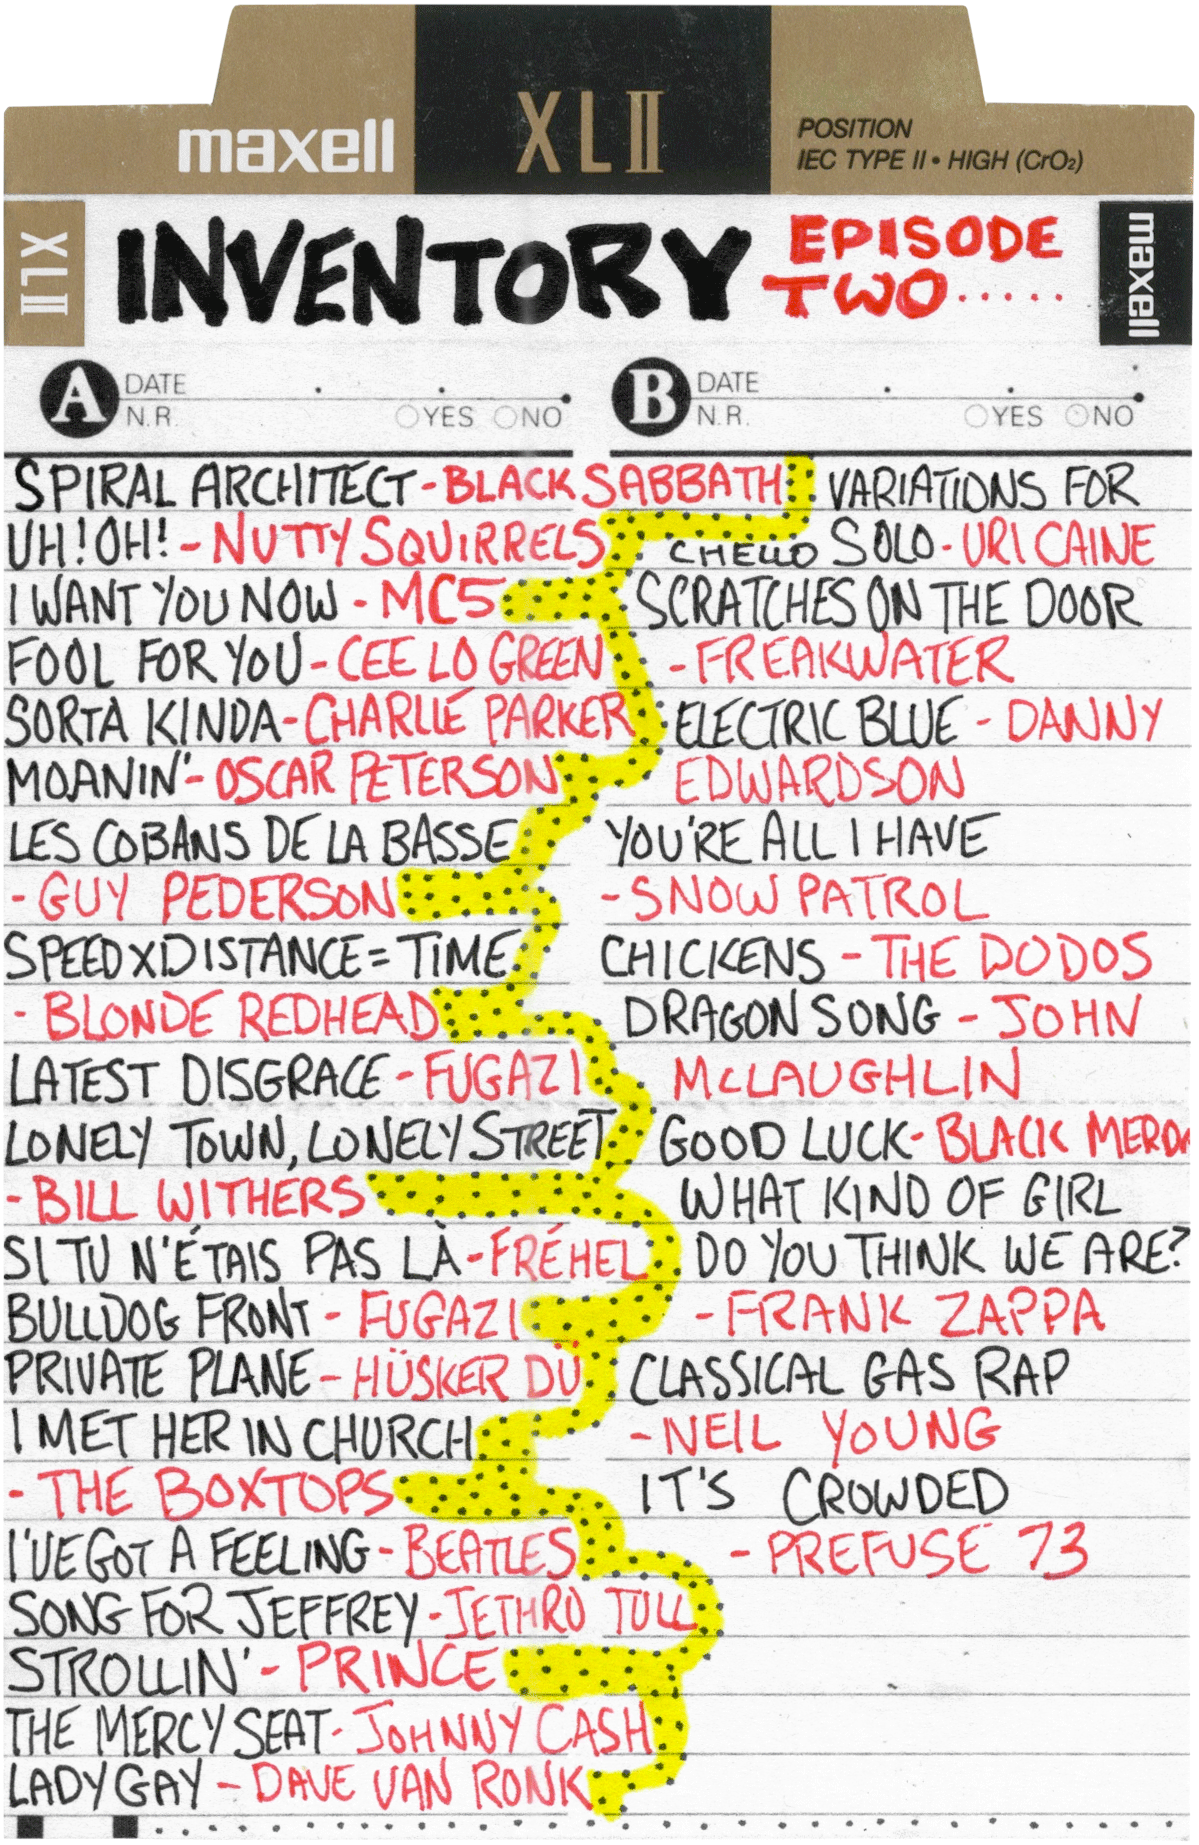 maxell
XLII
POSITION
IEC TYPE II • HIGH (CrO₂)
XLII
INVENTORY
EPISODE
TWO......
maxell
A DATE
N.R. YES NO
B DATE
N.R. YES NO
SPIRAL ARCHITECT - BLACK SABBATH
UH! OH! - NUTTY SQUIRRELS
I WANT YOU NOW - MC5
FOOL FOR YOU - CEE LO GREEN
SORTA KINDA - CHARLIE PARKER
MOANIN' - OSCAR PETERSON
LES COBANS DE LA BASSE
- GUY PEDERSON
SPEED X DISTANCE = TIME
- BLONDE REDHEAD
LATEST DISGRACE - FUGAZI
LONELY TOWN, LONELY STREET
- BILL WITHERS
SI TU N'ÉTAIS PAS LÀ - FRÉHEL
BULLDOG FRONT - FUGAZI
PRIVATE PLANE - HÜSKER DÜ
I MET HER IN CHURCH
- THE BOXTOPS
I'VE GOT A FEELING - BEATLES
SONG FOR JEFFREY - JETHRO TULL
STROLLIN' - PRINCE
THE MERCY SEAT - JOHNNY CASH
LADY GAY - DAVE VAN RONK
VARIATIONS FOR
CHELLO SOLO - URI CAINE
SCRATCHES ON THE DOOR
- FREAKWATER
ELECTRIC BLUE - DANNY
EDWARDSON
YOU'RE ALL I HAVE
- SNOW PATROL
CHICKENS - THE DODOS
DRAGON SONG - JOHN
McLAUGHLIN
GOOD LUCK - BLACK MERDA
WHAT KIND OF GIRL
DO YOU THINK WE ARE?
- FRANK ZAPPA
CLASSICAL GAS RAP
- NEIL YOUNG
IT'S CROWDED
- PREFUSE 73